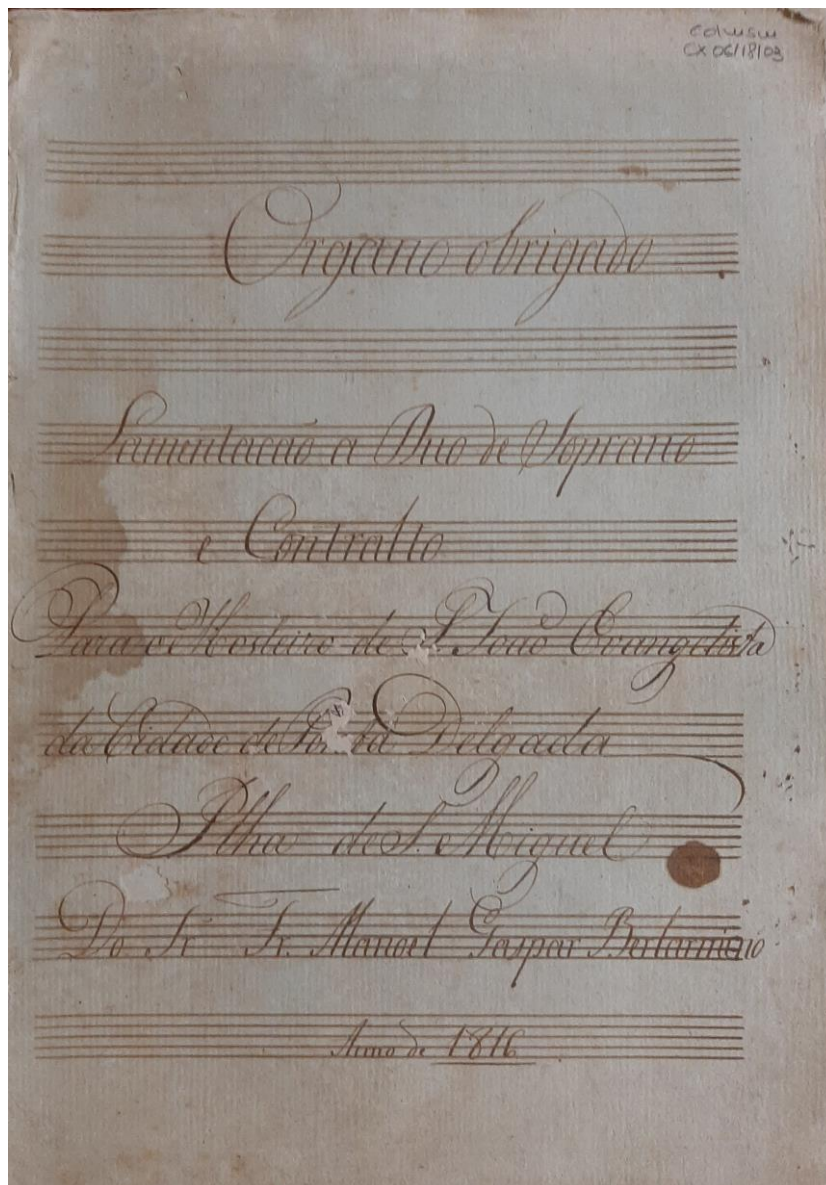 CX 06/18/03
Organo obrigado
Lamentacão a Duo de Soprano
e Contralto
Para o Mosteiro de S. João Evangelista
da Cidade de Delgada
Ilha de S. Miguel
Do Sr Fr. Manoel Gaspar Berlarmino
Anno de 1816